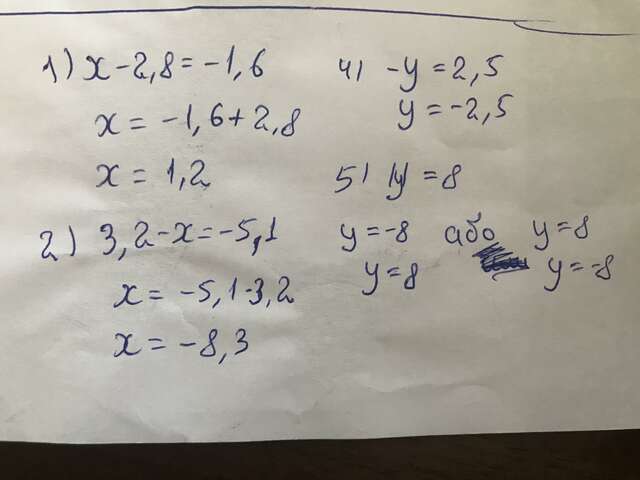 1) x - 2,8 = -1,6
x = -1,6 + 2,8
x = 1,2
2) 3,2 - x = -5,1
x = -5,1 - 3,2
x = -8,3
4) -y = 2,5
y = -2,5
5) |y| = 8
y = -8 або y = 8
y = 8 y = -8